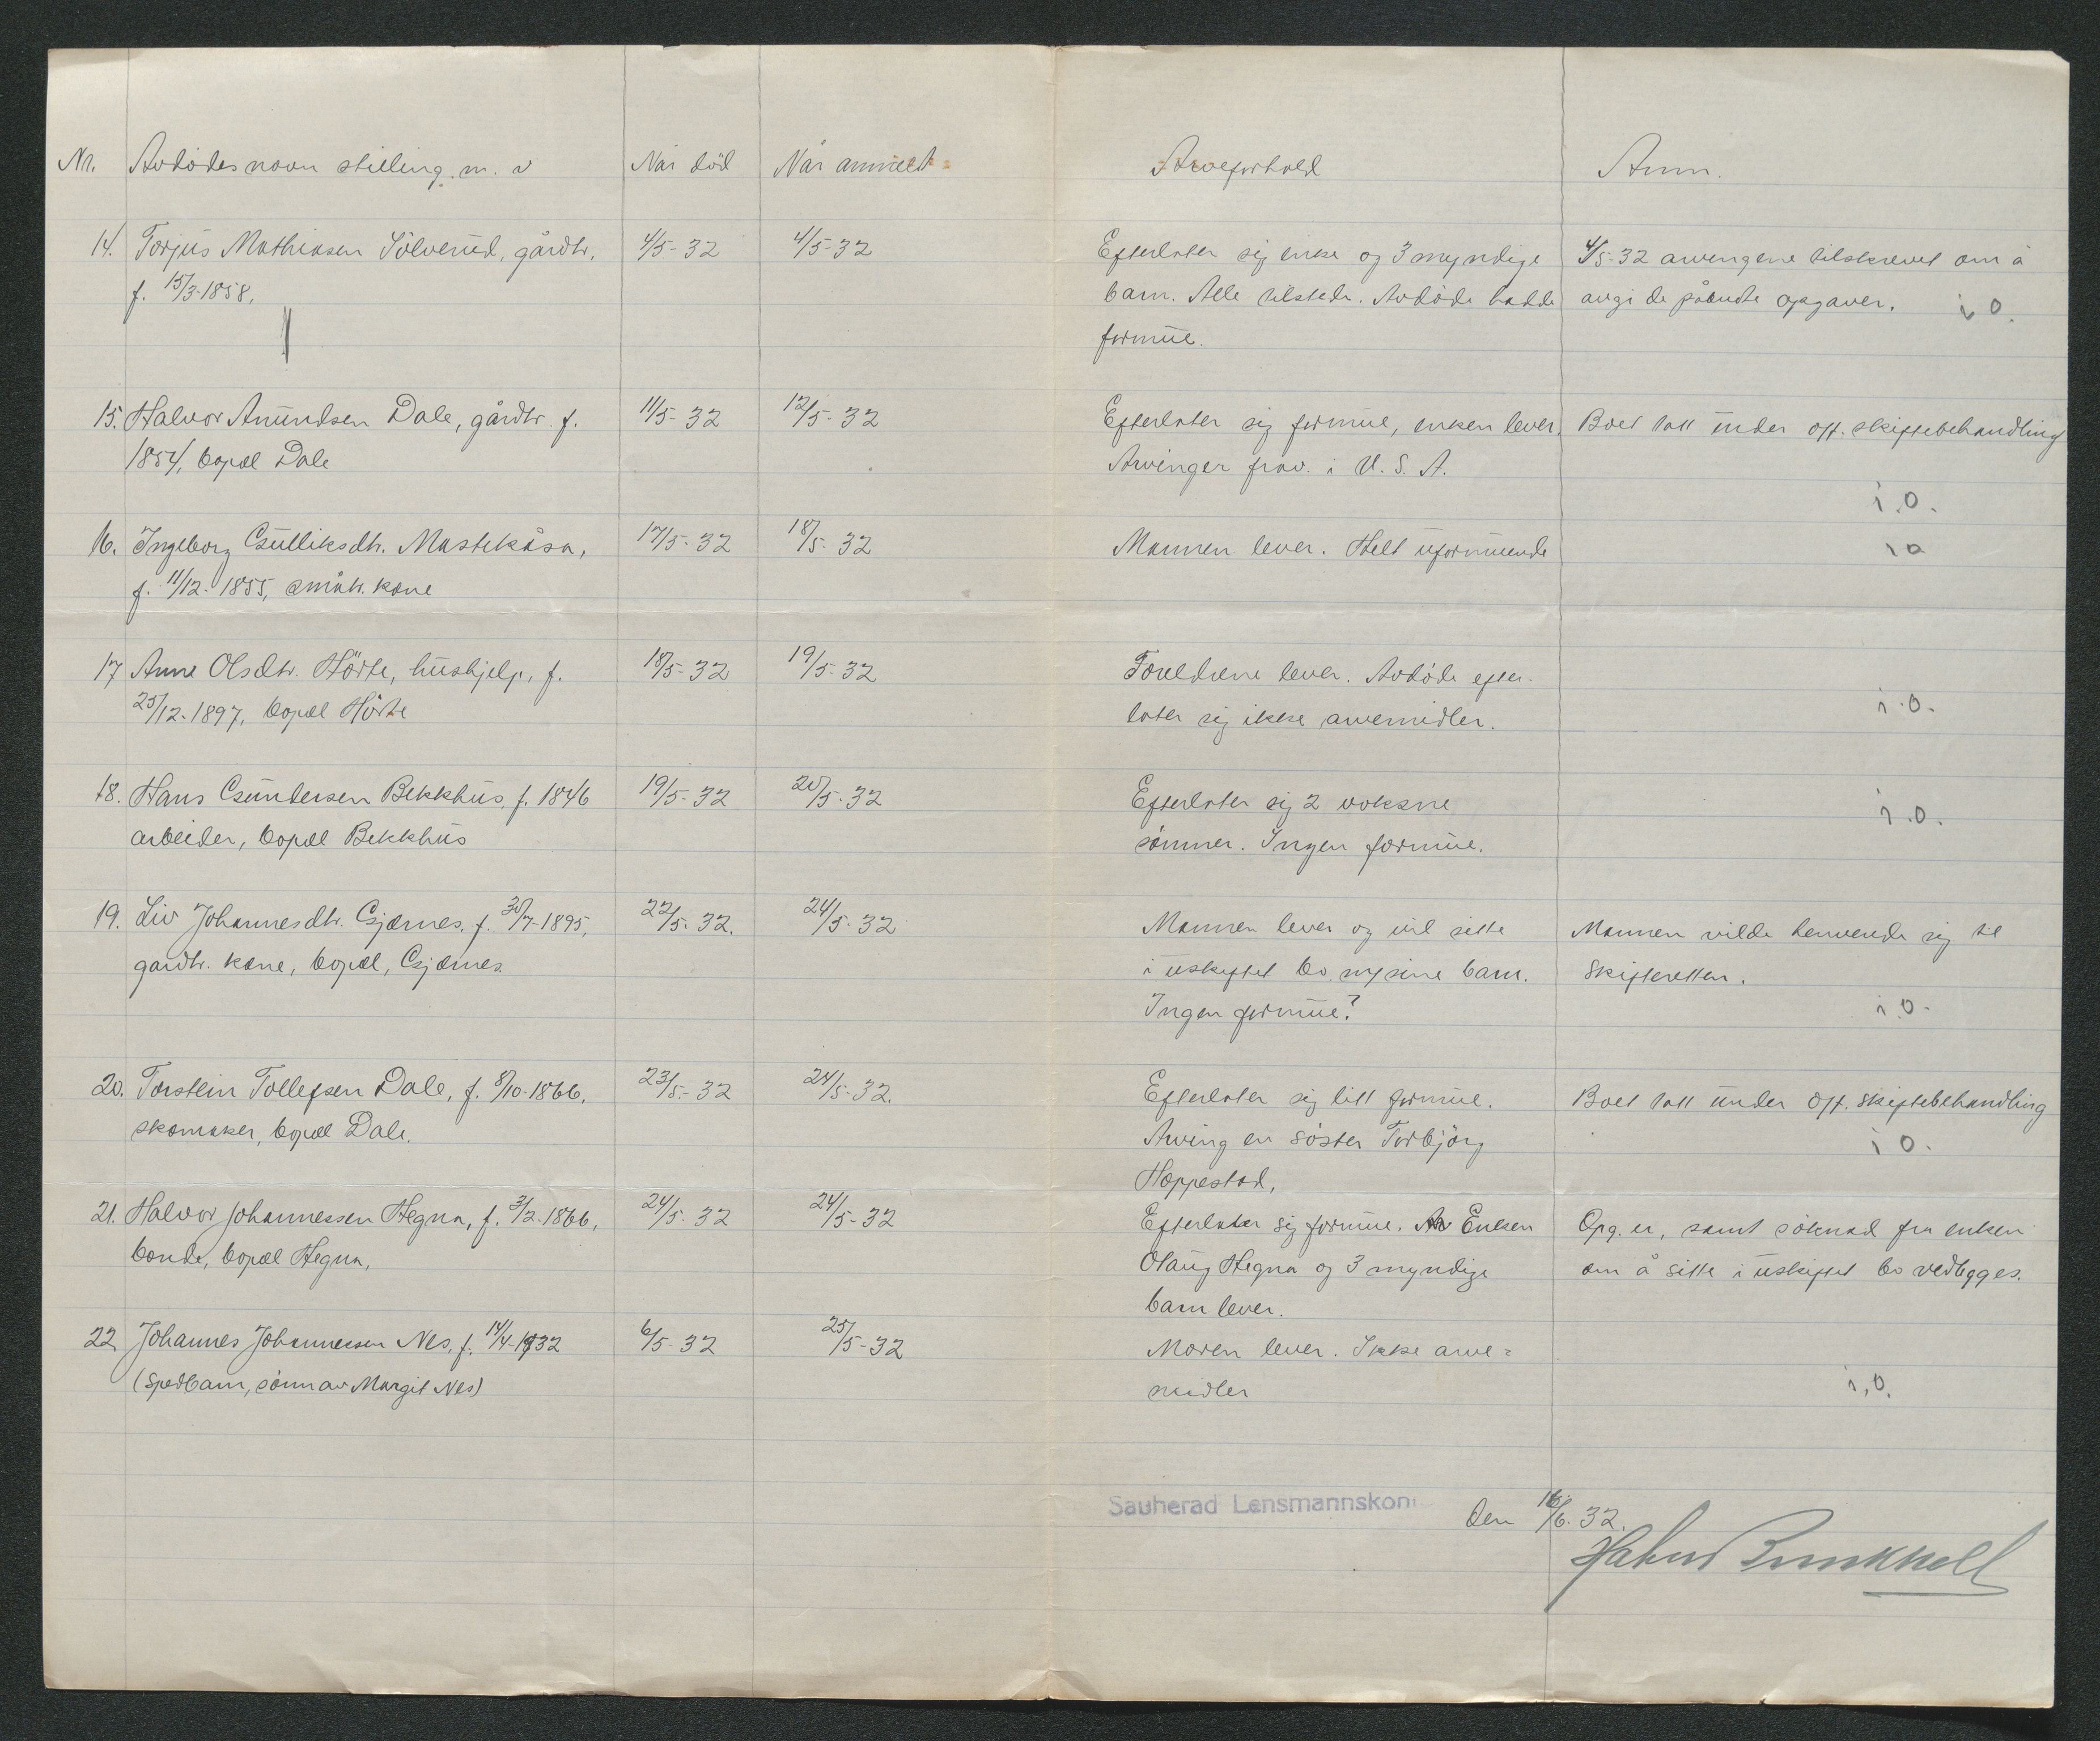 Nr. Avdödes navn stilling m. v Når död Når anmeldt Arveforhold Anm.
14. Torjus Mathiasen Sölverud, gårdbr. 4/5-32 4/5-32 Efterlater sig enke og 3 myndige 4/5-32 arvingene tilskrevet om å
f. 15/3-1858. barn. Alle tilstede. Avdöde hadde avgi de påbudte opgaver. i o.
formue.
15. Halvor Amundsen Dale, gårdbr. f. 11/5-32 12/5-32 Efterlater sig formue, enken lever. Boet tatt under off. skiftebehandling
1854, bopæl Dale Arvinger frav. i U. S. A.
i.o.
16. Ingeborg Gulliksdtr. Mastekåsa, 17/5-32 18/5-32 Mannen lever. Helt uformuende i o
f. 11/12-1855, småbr. kone
17 Anne Olsdtr. Hörte, hushjelp, f. 18/5-32 19/5-32 Foreldrene lever. Avdöde efter-
25/12-1897, bopæl Hörte later sig ikke arvemidler. i.o.
18. Hans Gundersen Bekkhus, f. 1846 19/5-32 20/5-32 Efterlater sig 2 voksne i.o.
arbeider, bopæl Bekkhus sönner. Ingen formue.
19. Liv Johannesdtr. Gjernes, f. 30/7-1895, 22/5-32. 24/5-32 Mannen lever og vil sitte Mannen vilde henvende sig til
gardbr. kone, bopæl, Gjernes. i uskiftet bo m/ sine barn. Skifteretten.
Ingen formue? i o.
20. Torstein Tollefsen Dale, f. 8/10-1866, 23/5-32 24/5-32. Efterlater sig litt formue. Boet tatt under off. skiftebehandling
skomaker, bopæl Dale. Arving en söster Torbjörg i o.
Hoppestad,
21. Halvor Johannessen Hegna, f. 3/2-1866, 24/5-32 24/5-32 Efterlater sig formue. Enken Opg. er, samt söknad fra enken
bonde, bopæl Hegna, Olaug Hegna og 3 myndige om å sitte i uskiftet bo vedlegges.
barn lever.
22 Johannes Johannessen Nes, f. 14/4-1932 6/5-32 25/5-32 Moren lever. Ikke arve=
(Spedbarn, sönn av Margit Nes) midler i,o.
Sauherad Lensmannskon den 16/6-32.